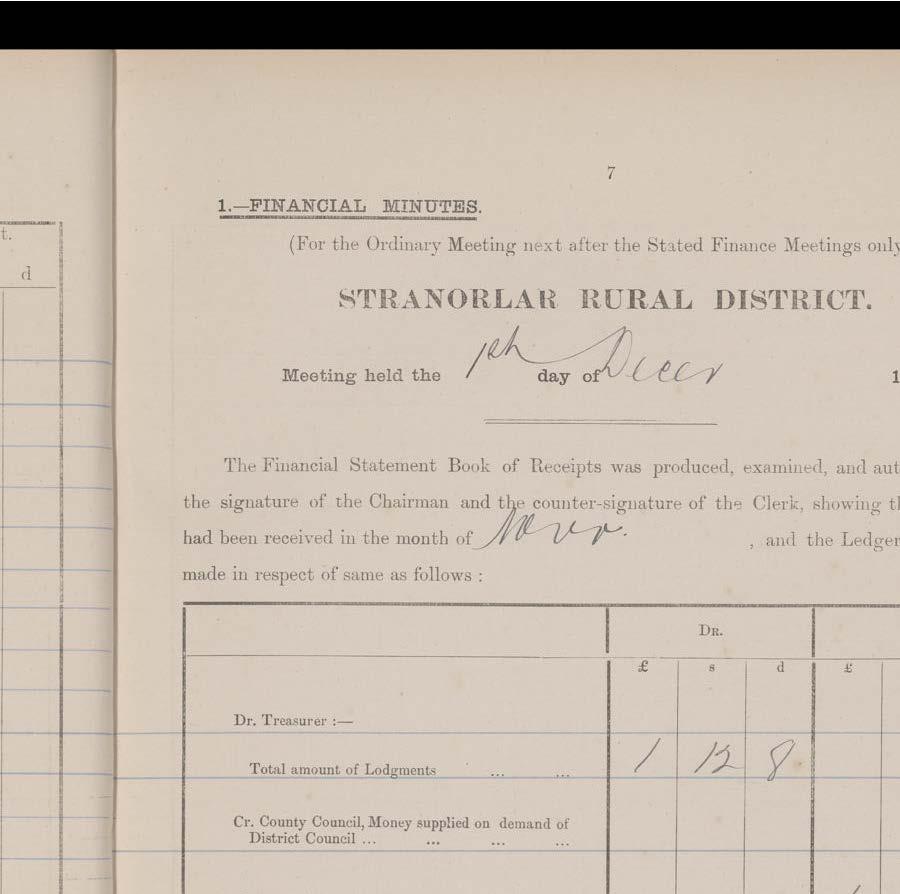 t.
d
7
1.—FINANCIAL MINUTES.
(For the Ordinary Meeting next after the Stated Finance Meetings only
STRANORLAR RURAL DISTRICT.
Meeting held the 1st day of Decer 1
The Financial Statement Book of Receipts was produced, examined, and aut
the signature of the Chairman and the counter-signature of the Clerk, showing th
had been received in the month of Novr. , and the Ledger
made in respect of same as follows :
DR.
£ s d £
Dr. Treasurer :—
Total amount of Lodgments ... ... 1 12 8
Cr. County Council, Money supplied on demand of
District Council ... ... ... ...